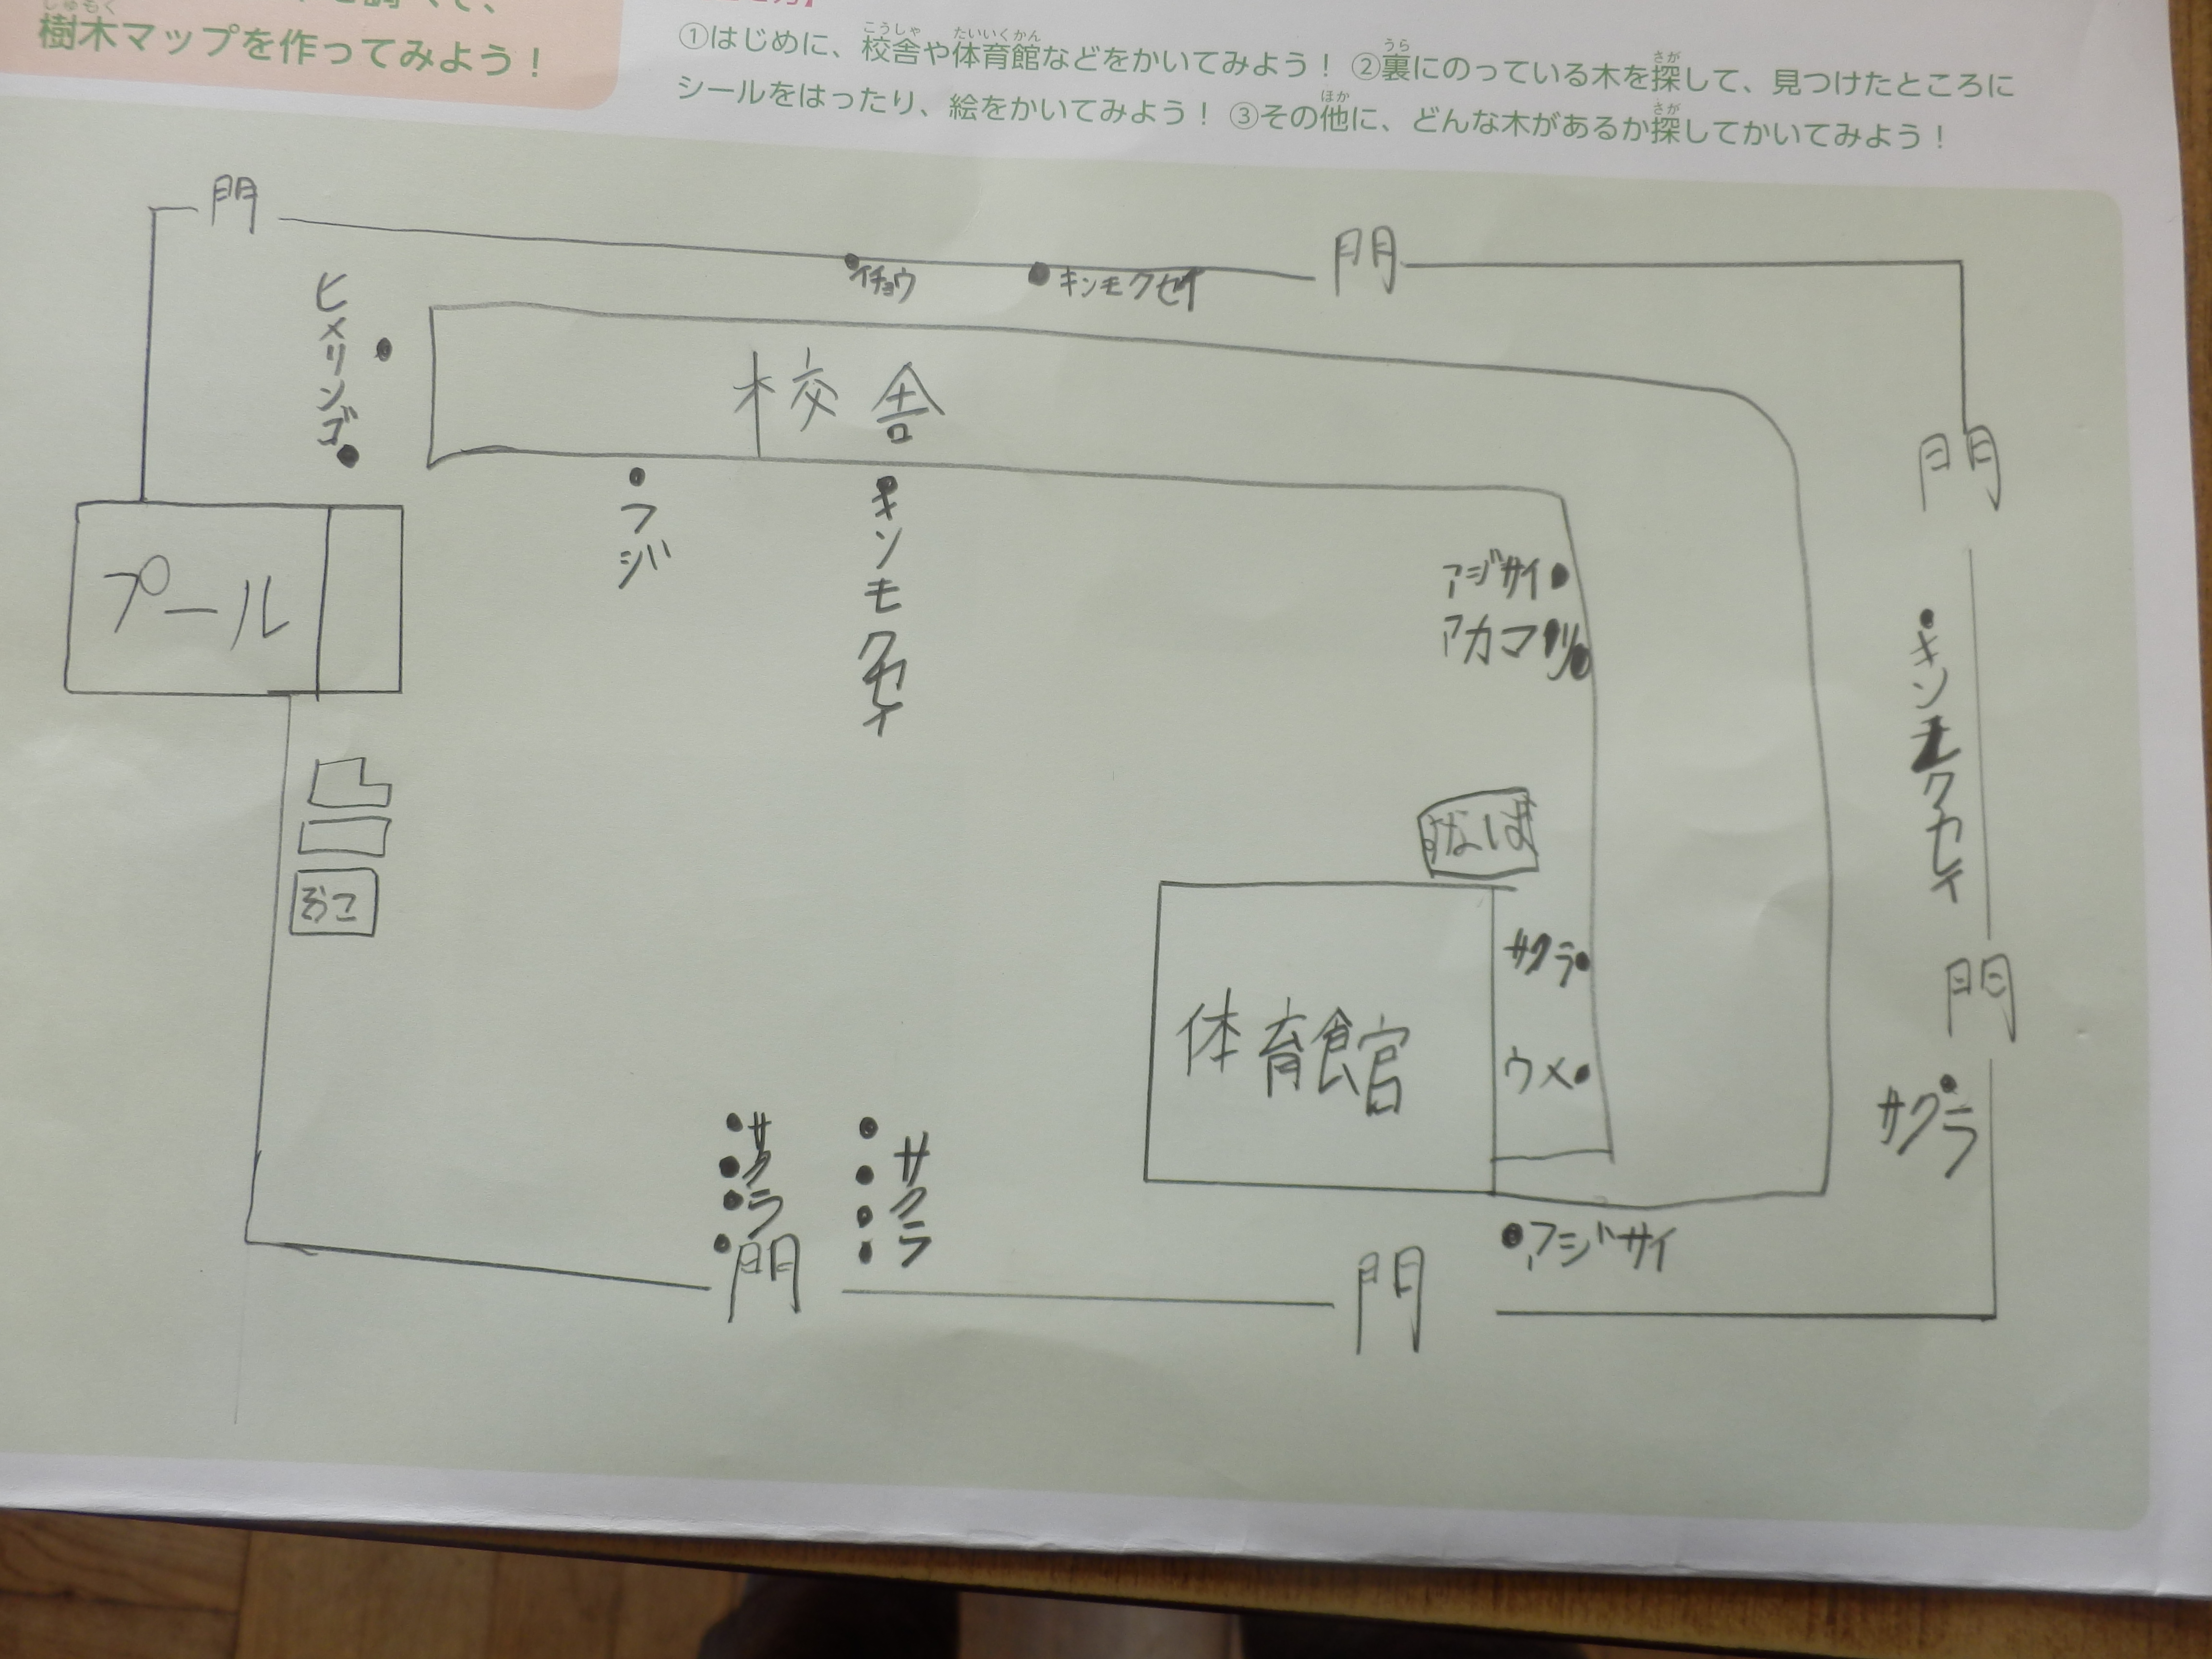 樹木マップを作ってみよう！
しゅもく
①はじめに、校舎や体育館などをかいてみよう！ ②裏にのっている木を探して、見つけたところに
こうしゃ たいいくかん うら さが
シールをはったり、絵をかいてみよう！ ③その他に、どんな木があるか探してかいてみよう！
ほか さが
門
門
イチョウ
キンモクセイ
ヒメリンゴ
校舎
門
フジ
キンモクセイ
プール
アジサイ
アカマツ
キンモクセイ
すなば
そこ
サクラ
体育館
門
ウメ
サクラ
サクラ
サクラ
門
アジサイ
門